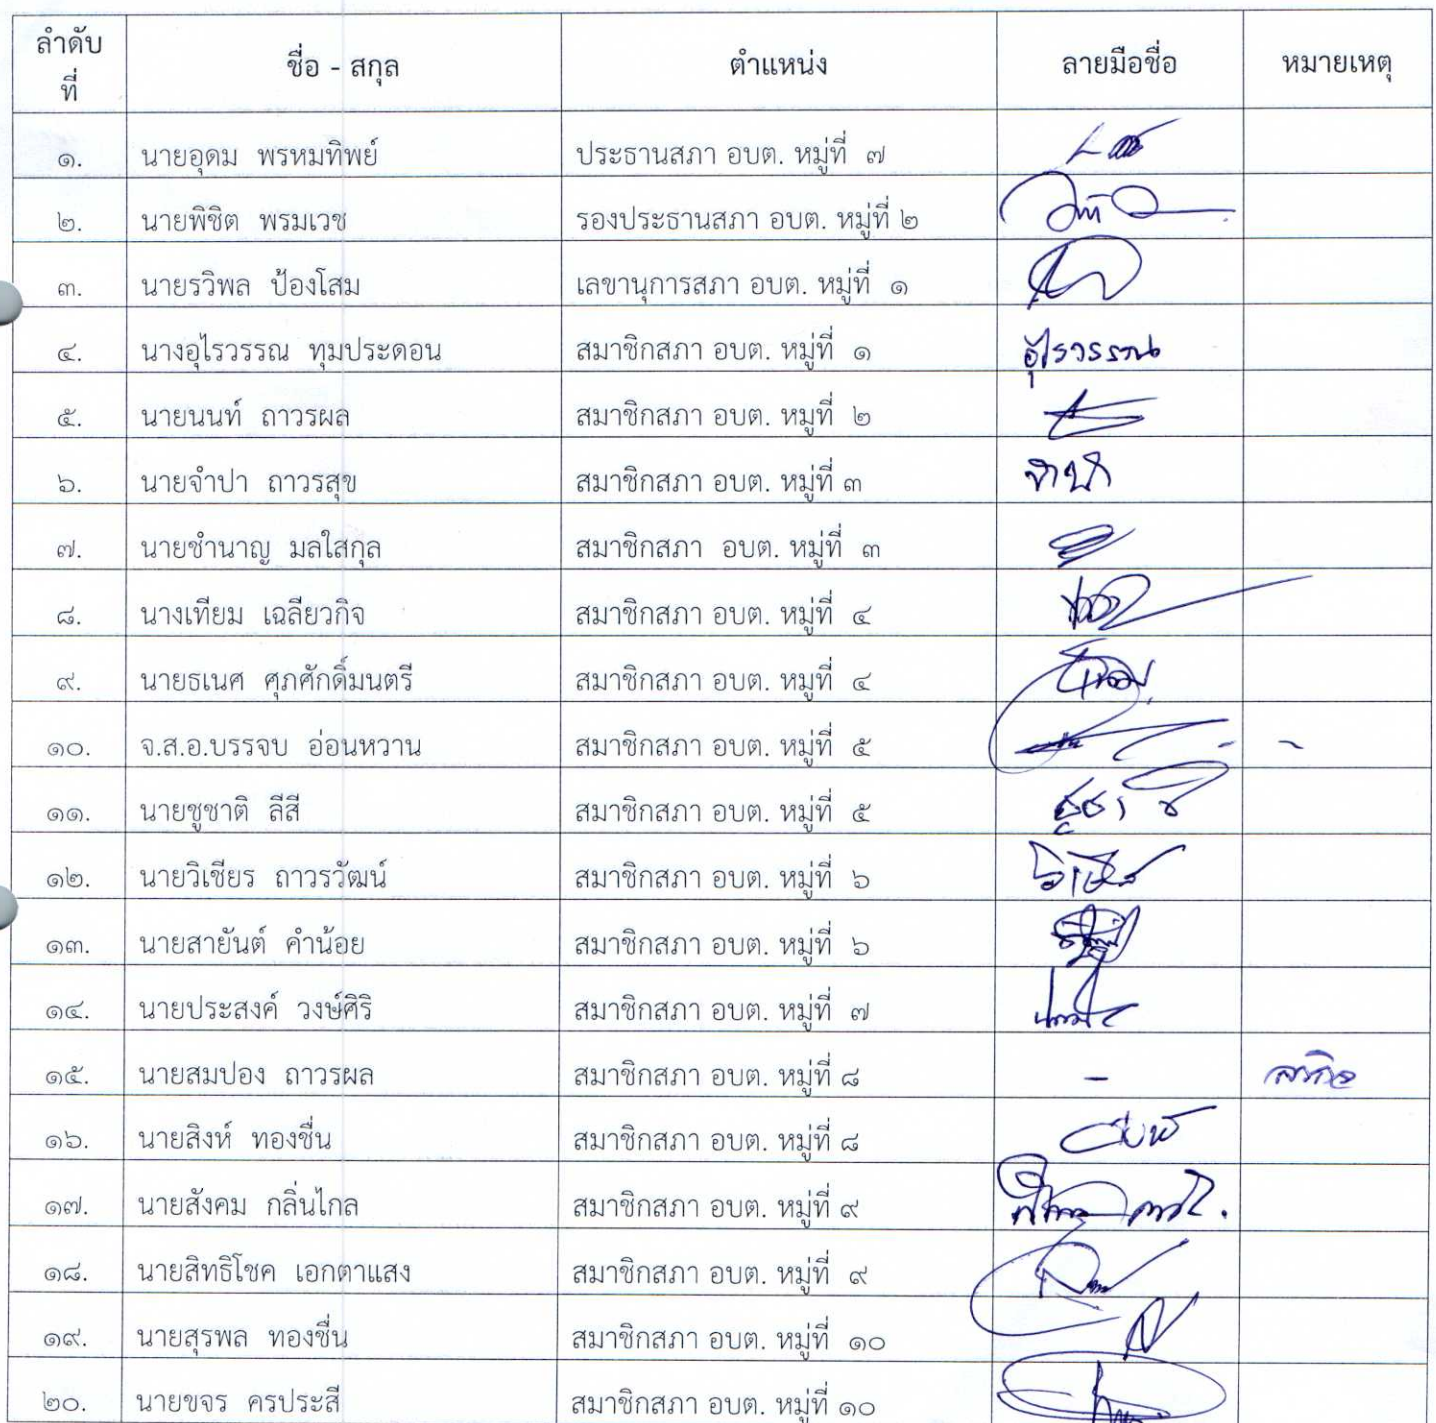 ลำดับที่ ชื่อ - สกุล ตำแหน่ง ลายมือชื่อ หมายเหตุ
๑. นายอุดม พรหมทิพย์ ประธานสภา อบต. หมู่ที่ ๗
๒. นายพิชิต พรมเวช รองประธานสภา อบต. หมู่ที่ ๒
๓. นายรวิพล ป้องโสม เลขานุการสภา อบต. หมู่ที่ ๑
๔. นางอุไรวรรณ ทุมประดอน สมาชิกสภา อบต. หมู่ที่ ๑ อุไรวรรณ
๕. นายนนท์ ถาวรผล สมาชิกสภา อบต. หมู่ที่ ๒
๖. นายจำปา ถาวรสุข สมาชิกสภา อบต. หมู่ที่ ๓ จำปา
๗. นายชำนาญ มลใสกุล สมาชิกสภา อบต. หมู่ที่ ๓
๘. นางเทียม เฉลียวกิจ สมาชิกสภา อบต. หมู่ที่ ๔
๙. นายธเนศ ศุภศักดิ์มนตรี สมาชิกสภา อบต. หมู่ที่ ๔
๑๐. จ.ส.อ.บรรจบ อ่อนหวาน สมาชิกสภา อบต. หมู่ที่ ๕
๑๑. นายชูชาติ ลีสี สมาชิกสภา อบต. หมู่ที่ ๕
๑๒. นายวิเชียร ถาวรวัฒน์ สมาชิกสภา อบต. หมู่ที่ ๖
๑๓. นายสายันต์ คำน้อย สมาชิกสภา อบต. หมู่ที่ ๖
๑๔. นายประสงค์ วงษ์ศิริ สมาชิกสภา อบต. หมู่ที่ ๗
๑๕. นายสมปอง ถาวรผล สมาชิกสภา อบต. หมู่ที่ ๘ - ลากิจ
๑๖. นายสิงห์ ทองชื่น สมาชิกสภา อบต. หมู่ที่ ๘
๑๗. นายสังคม กลิ่นไกล สมาชิกสภา อบต. หมู่ที่ ๙
๑๘. นายสิทธิโชค เอกตาแสง สมาชิกสภา อบต. หมู่ที่ ๙
๑๙. นายสุรพล ทองชื่น สมาชิกสภา อบต. หมู่ที่ ๑๐
๒๐. นายขจร ครประสี สมาชิกสภา อบต. หมู่ที่ ๑๐